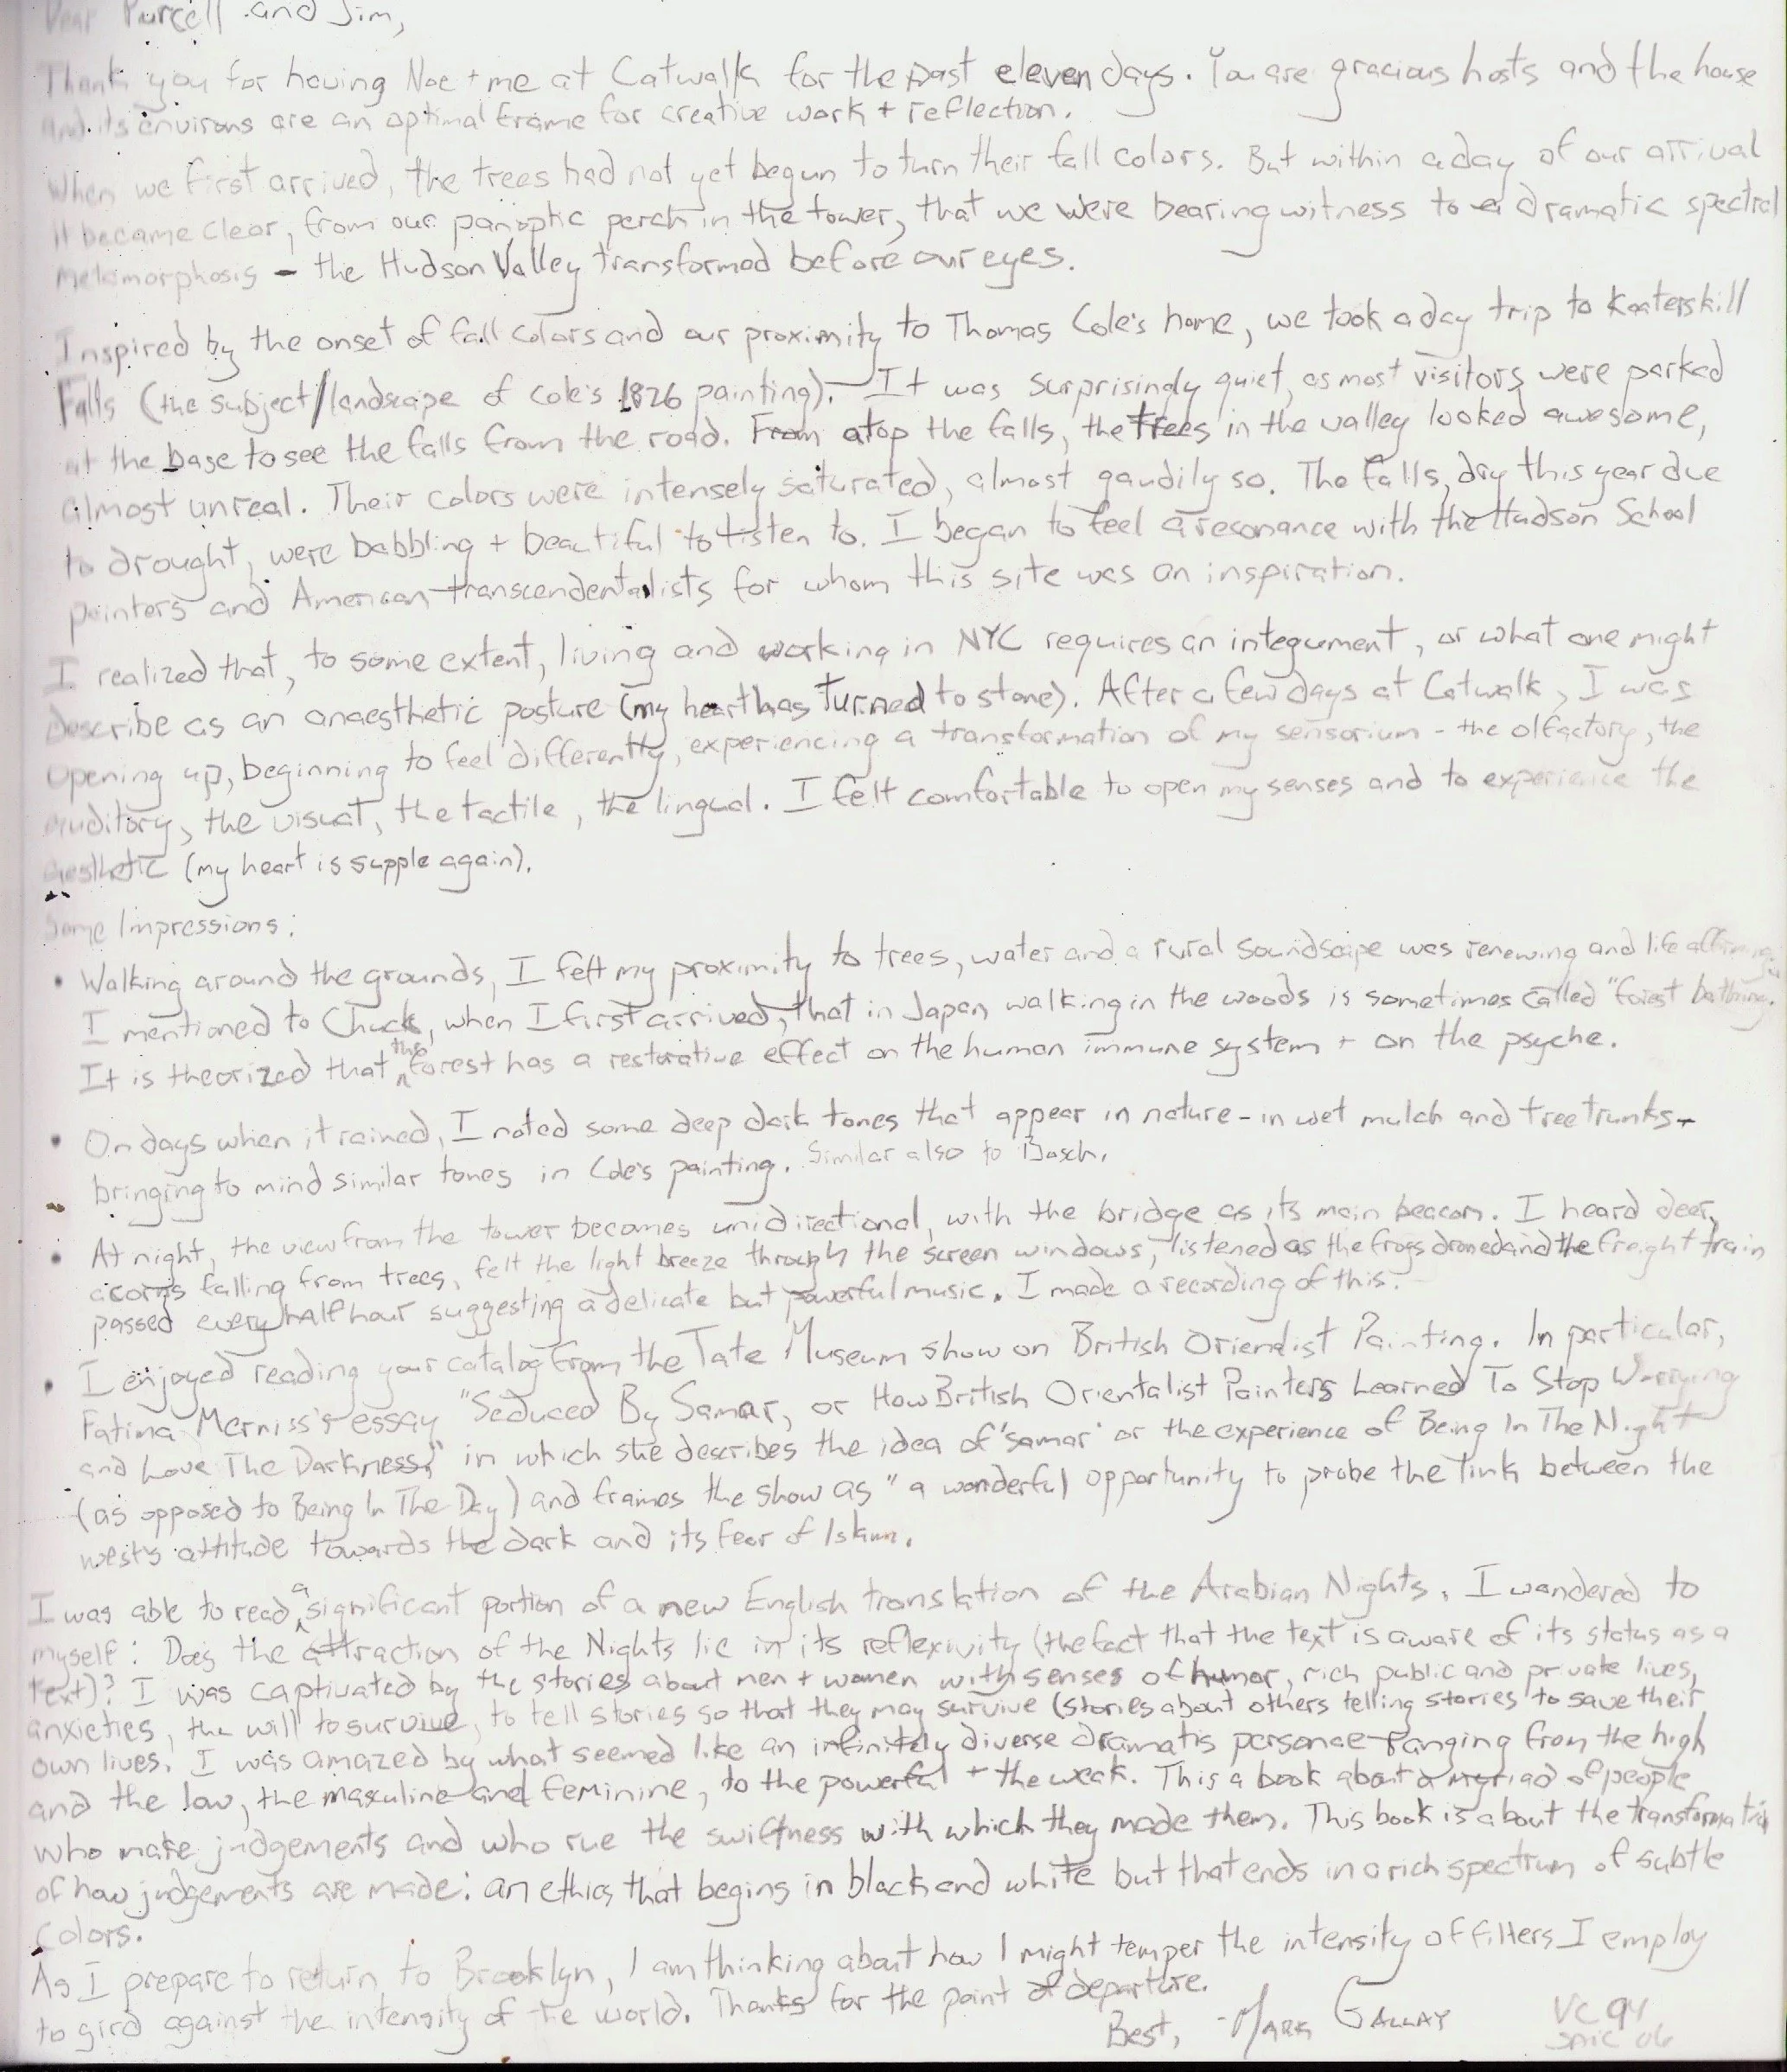 Dear Purcell and Jim,
Thank you for having Noe + me at Catwalk for the past eleven days. You are gracious hosts and the house
and its environs are an optimal frame for creative work + reflection.
When we first arrived, the trees had not yet begun to turn their fall colors. But within a day of our arrival
it became clear, from our panoptic perch in the tower, that we were bearing witness to a dramatic spectral
metamorphosis - the Hudson Valley transformed before our eyes.
Inspired by the onset of fall colors and our proximity to Thomas Cole's home, we took a day trip to Kaaterskill
Falls (the subject/landscape of Cole's 1826 painting). It was surprisingly quiet, as most visitors were parked
at the base to see the falls from the road. From atop the falls, the trees in the valley looked awesome,
almost unreal. Their colors were intensely saturated, almost gaudily so. The falls, dry this year due
to drought, were babbling + beautiful to listen to. I began to feel a resonance with the Hudson School
painters and American transcendentalists for whom this site was an inspiration.
I realized that, to some extent, living and working in NYC requires an integument, or what one might
describe as an anaesthetic posture (my heart has turned to stone). After a few days at Catwalk, I was
opening up, beginning to feel differently, experiencing a transformation of my sensorium - the olfactory, the
auditory, the visual, the tactile, the lingual. I felt comfortable to open my senses and to experience the
aesthetic (my heart is supple again).
Some Impressions:
• Walking around the grounds, I felt my proximity to trees, water and a rural soundscape was renewing and life affirming.
I mentioned to Chuck, when I first arrived, that in Japan walking in the woods is sometimes called "forest bathing."
It is theorized that the forest has a restorative effect on the human immune system + on the psyche.
• On days when it rained, I noted some deep dark tones that appear in nature - in wet mulch and tree trunks -
bringing to mind similar tones in Cole's painting. Similar also to Bosch.
• At night, the view from the tower becomes unidirectional, with the bridge as its main beacon. I heard deer,
acorns falling from trees, felt the light breeze through the screen windows, listened as the frogs droned and the freight train
passed every half hour suggesting a delicate but powerful music. I made a recording of this.
• I enjoyed reading your catalog from the Tate Museum show on British Orientalist Painting. In particular,
Fatima Merniss's essay "Seduced By Samar, or How British Orientalist Painters Learned To Stop Worrying
and Love The Darkness," in which she describes the idea of 'samar' or the experience of Being In The Night
(as opposed to Being In The Day) and frames the show as "a wonderful opportunity to probe the link between the
west's attitude towards the dark and its fear of Islam.
I was able to read a significant portion of a new English translation of the Arabian Nights. I wondered to
myself: Does the attraction of the Nights lie in its reflexivity (the fact that the text is aware of its status as a
text)? I was captivated by the stories about men + women with senses of humor, rich public and private lives,
anxieties, the will to survive, to tell stories so that they may survive (stories about others telling stories to save their
own lives. I was amazed by what seemed like an infinitely diverse dramatis personae ranging from the high
and the low, the masculine and feminine, to the powerful + the weak. This a book about a myriad of people
who make judgements and who rue the swiftness with which they made them. This book is about the transformation
of how judgements are made: an ethics that begins in black and white but that ends in a rich spectrum of subtle
colors.
As I prepare to return to Brooklyn, I am thinking about how I might temper the intensity of filters I employ
to gird against the intensity of the world. Thanks for the point of departure.
Best, - Mark Gallay
VC 94
SAIC 06